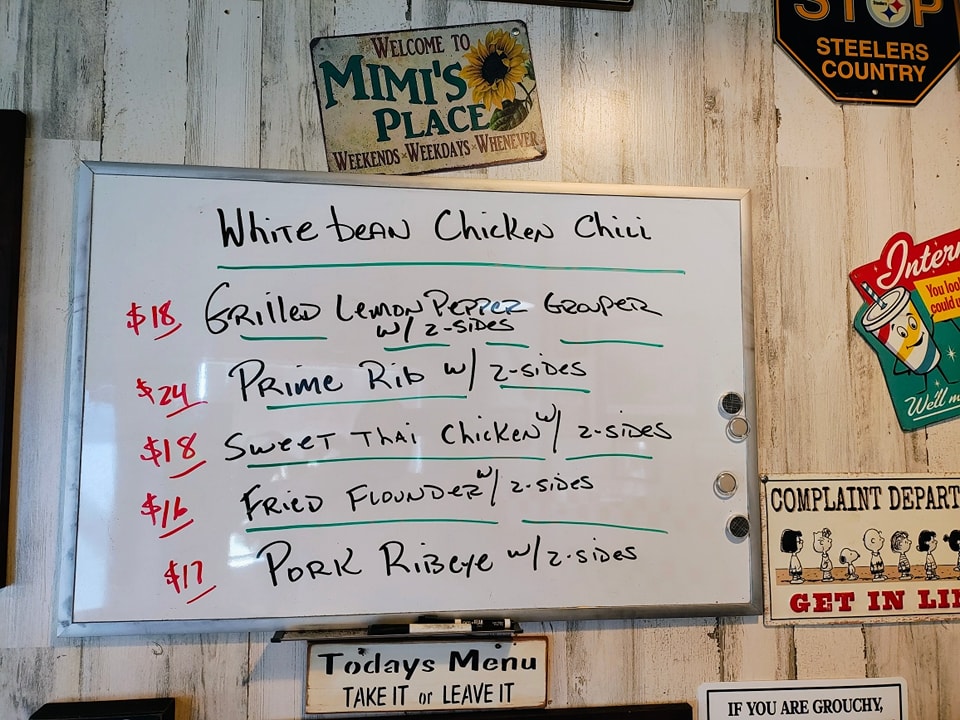 STOP
STEELERS
COUNTRY
WELCOME TO
MIMI'S
PLACE
WEEKENDS·WEEKDAYS·WHENEVER
White bean Chicken Chili
$18 Grilled Lemon Pepper Grouper
w/ 2-sides
$24 Prime Rib w/ 2-sides
$18 Sweet Thai Chicken w/ 2-sides
$16 Fried Flounder w/ 2-sides
$17 Pork Ribeye w/ 2-sides
You
We'll
COMPLAINT
GET IN
Todays Menu
TAKE IT or LEAVE IT
IF YOU ARE GROUCHY,